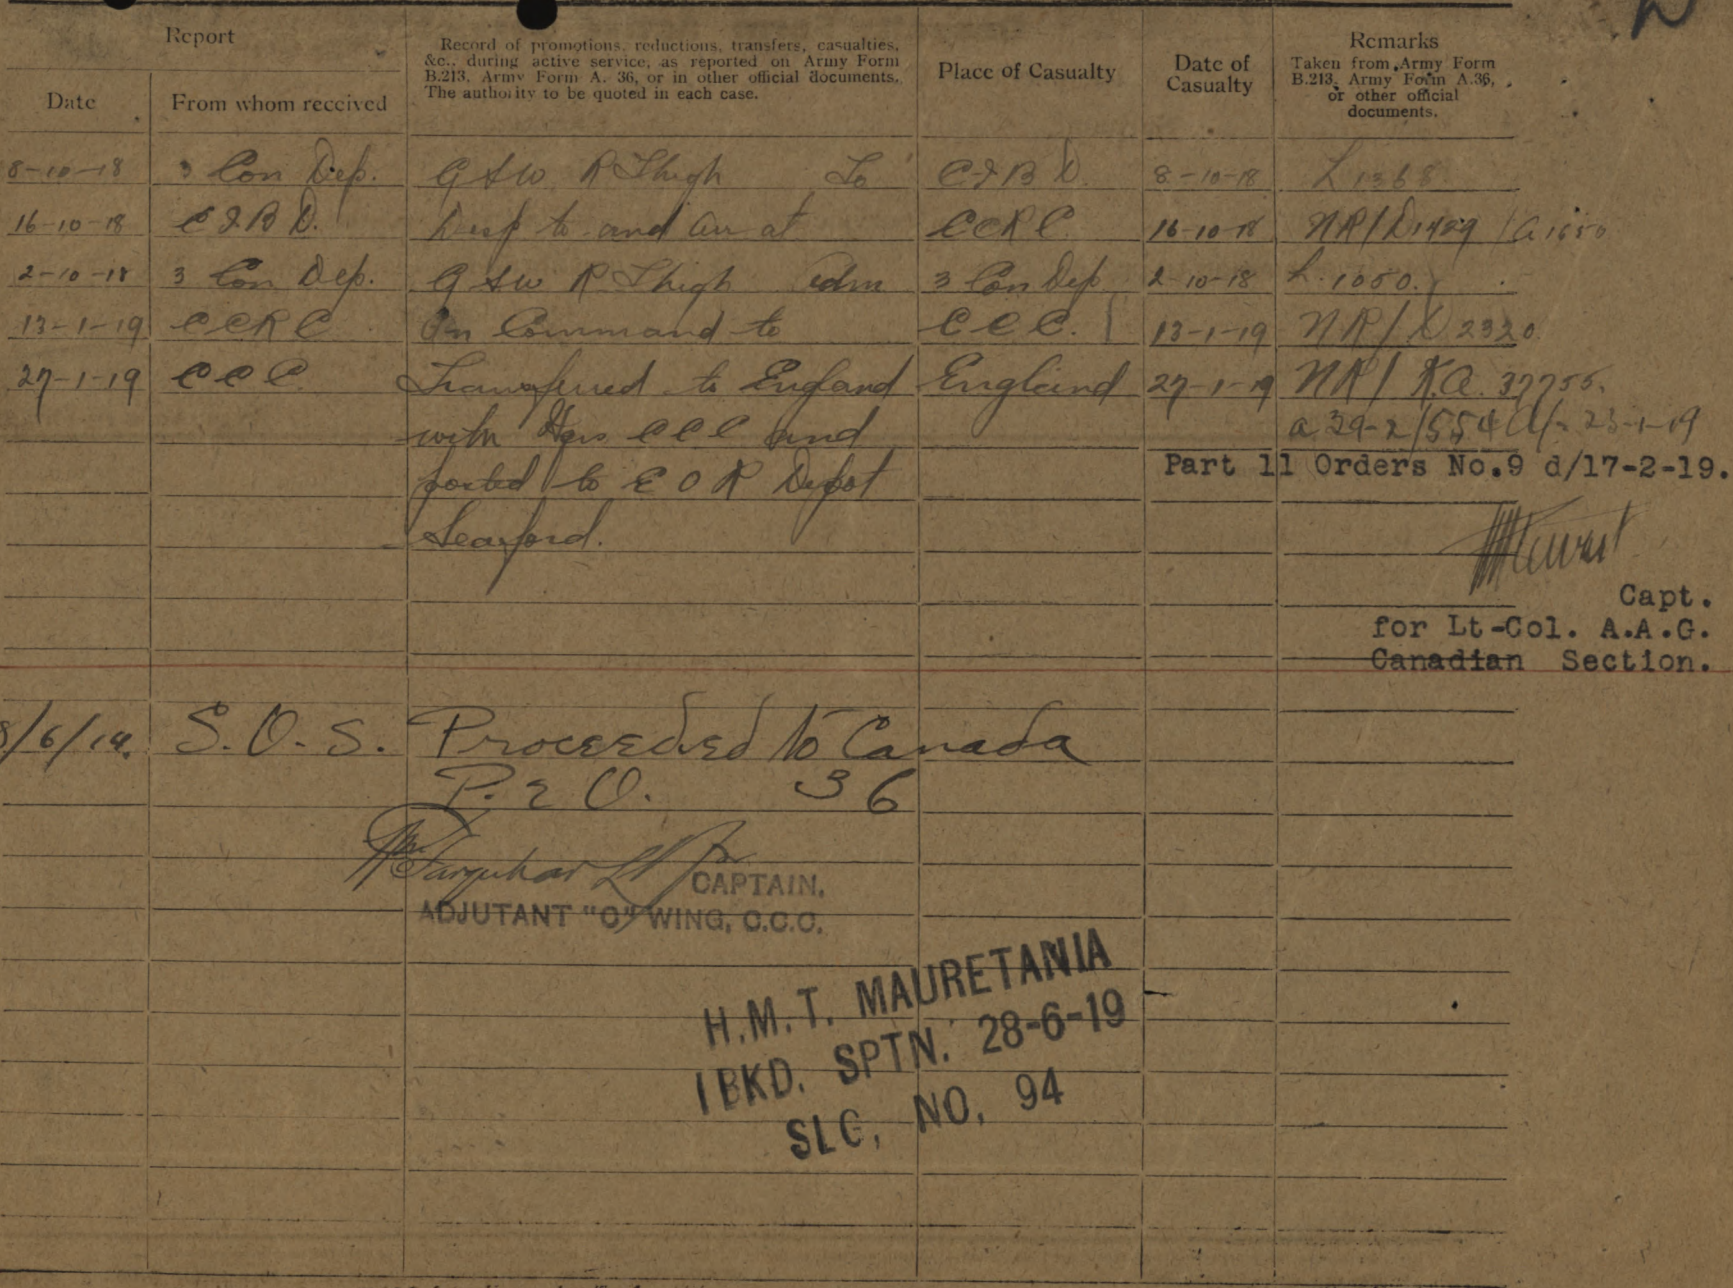 Report
Record of promotions, reductions, transfers, casualties,
&c., during active service, as reported on Army Form
B.213, Army Form A. 36, or in other official documents.
The authority to be quoted in each case.
Place of Casualty
Date of
Casualty
Remarks
Taken from Army Form
B.213, Army Form A.36,
or other official
documents.
Date
From whom received
8-10-18 3 Con Dep. G S W R Thigh To C I B D. 8-10-18 L 1368
16-10-18 C I B D. Desp to and arr at C C R C. 16-10-18 NR/D1429
2-10-18 3 Con Dep. G S W R Thigh adm 3 Con Dep 2-10-18 L. 1050.
13-1-19 C C R C On Command to C C C. 13-1-19 NR/D 2320
27-1-19 C C C. Transferred to England England 27-1-19 NR/ K.A. 37755.
with Hqrs C C C and a 29-2/554 23-1-19
Part 11 Orders No.9 d/17-2-19.
posted to E O R Depot
Seaford.
Capt.
for Lt-Col. A.A.G.
Canadian Section.
/6/19. S.O.S. Proceeded to Canada
P. 2 O. 36
Farquhar Lt
CAPTAIN,
ADJUTANT "O" WING, C.C.C.
H.M.T. MAURETANIA
1BKD. SPTN. 28-6-19
SLG, NO, 94